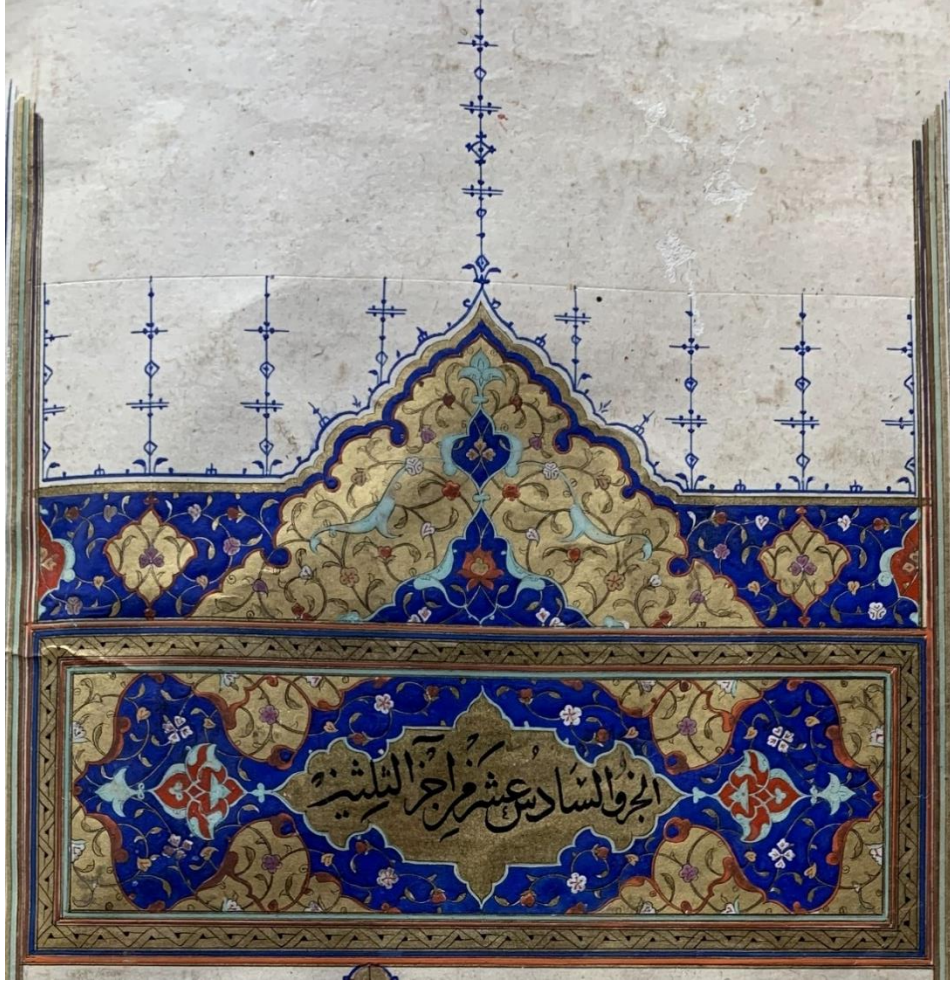 الجزو السادس عشر من اجزآ الثلثين